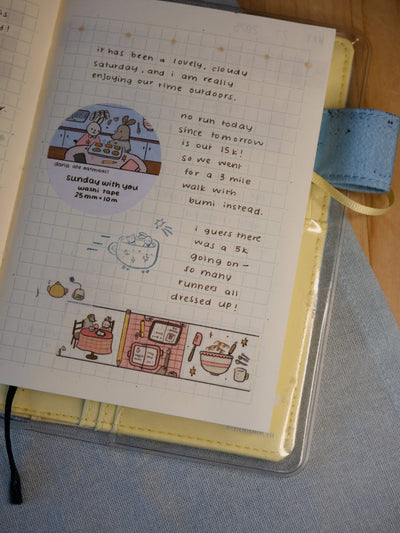 it has been a lovely, cloudy
saturday, and i am really
enjoying our time outdoors.
no run today
since tomorrow
is our 15k!
so we went
for a 3 mile
walk with
bumi instead.
sunday with you
washi tape
25mm×10m
i guess there
was a 5k
going on—
so many
runners all
dressed up!